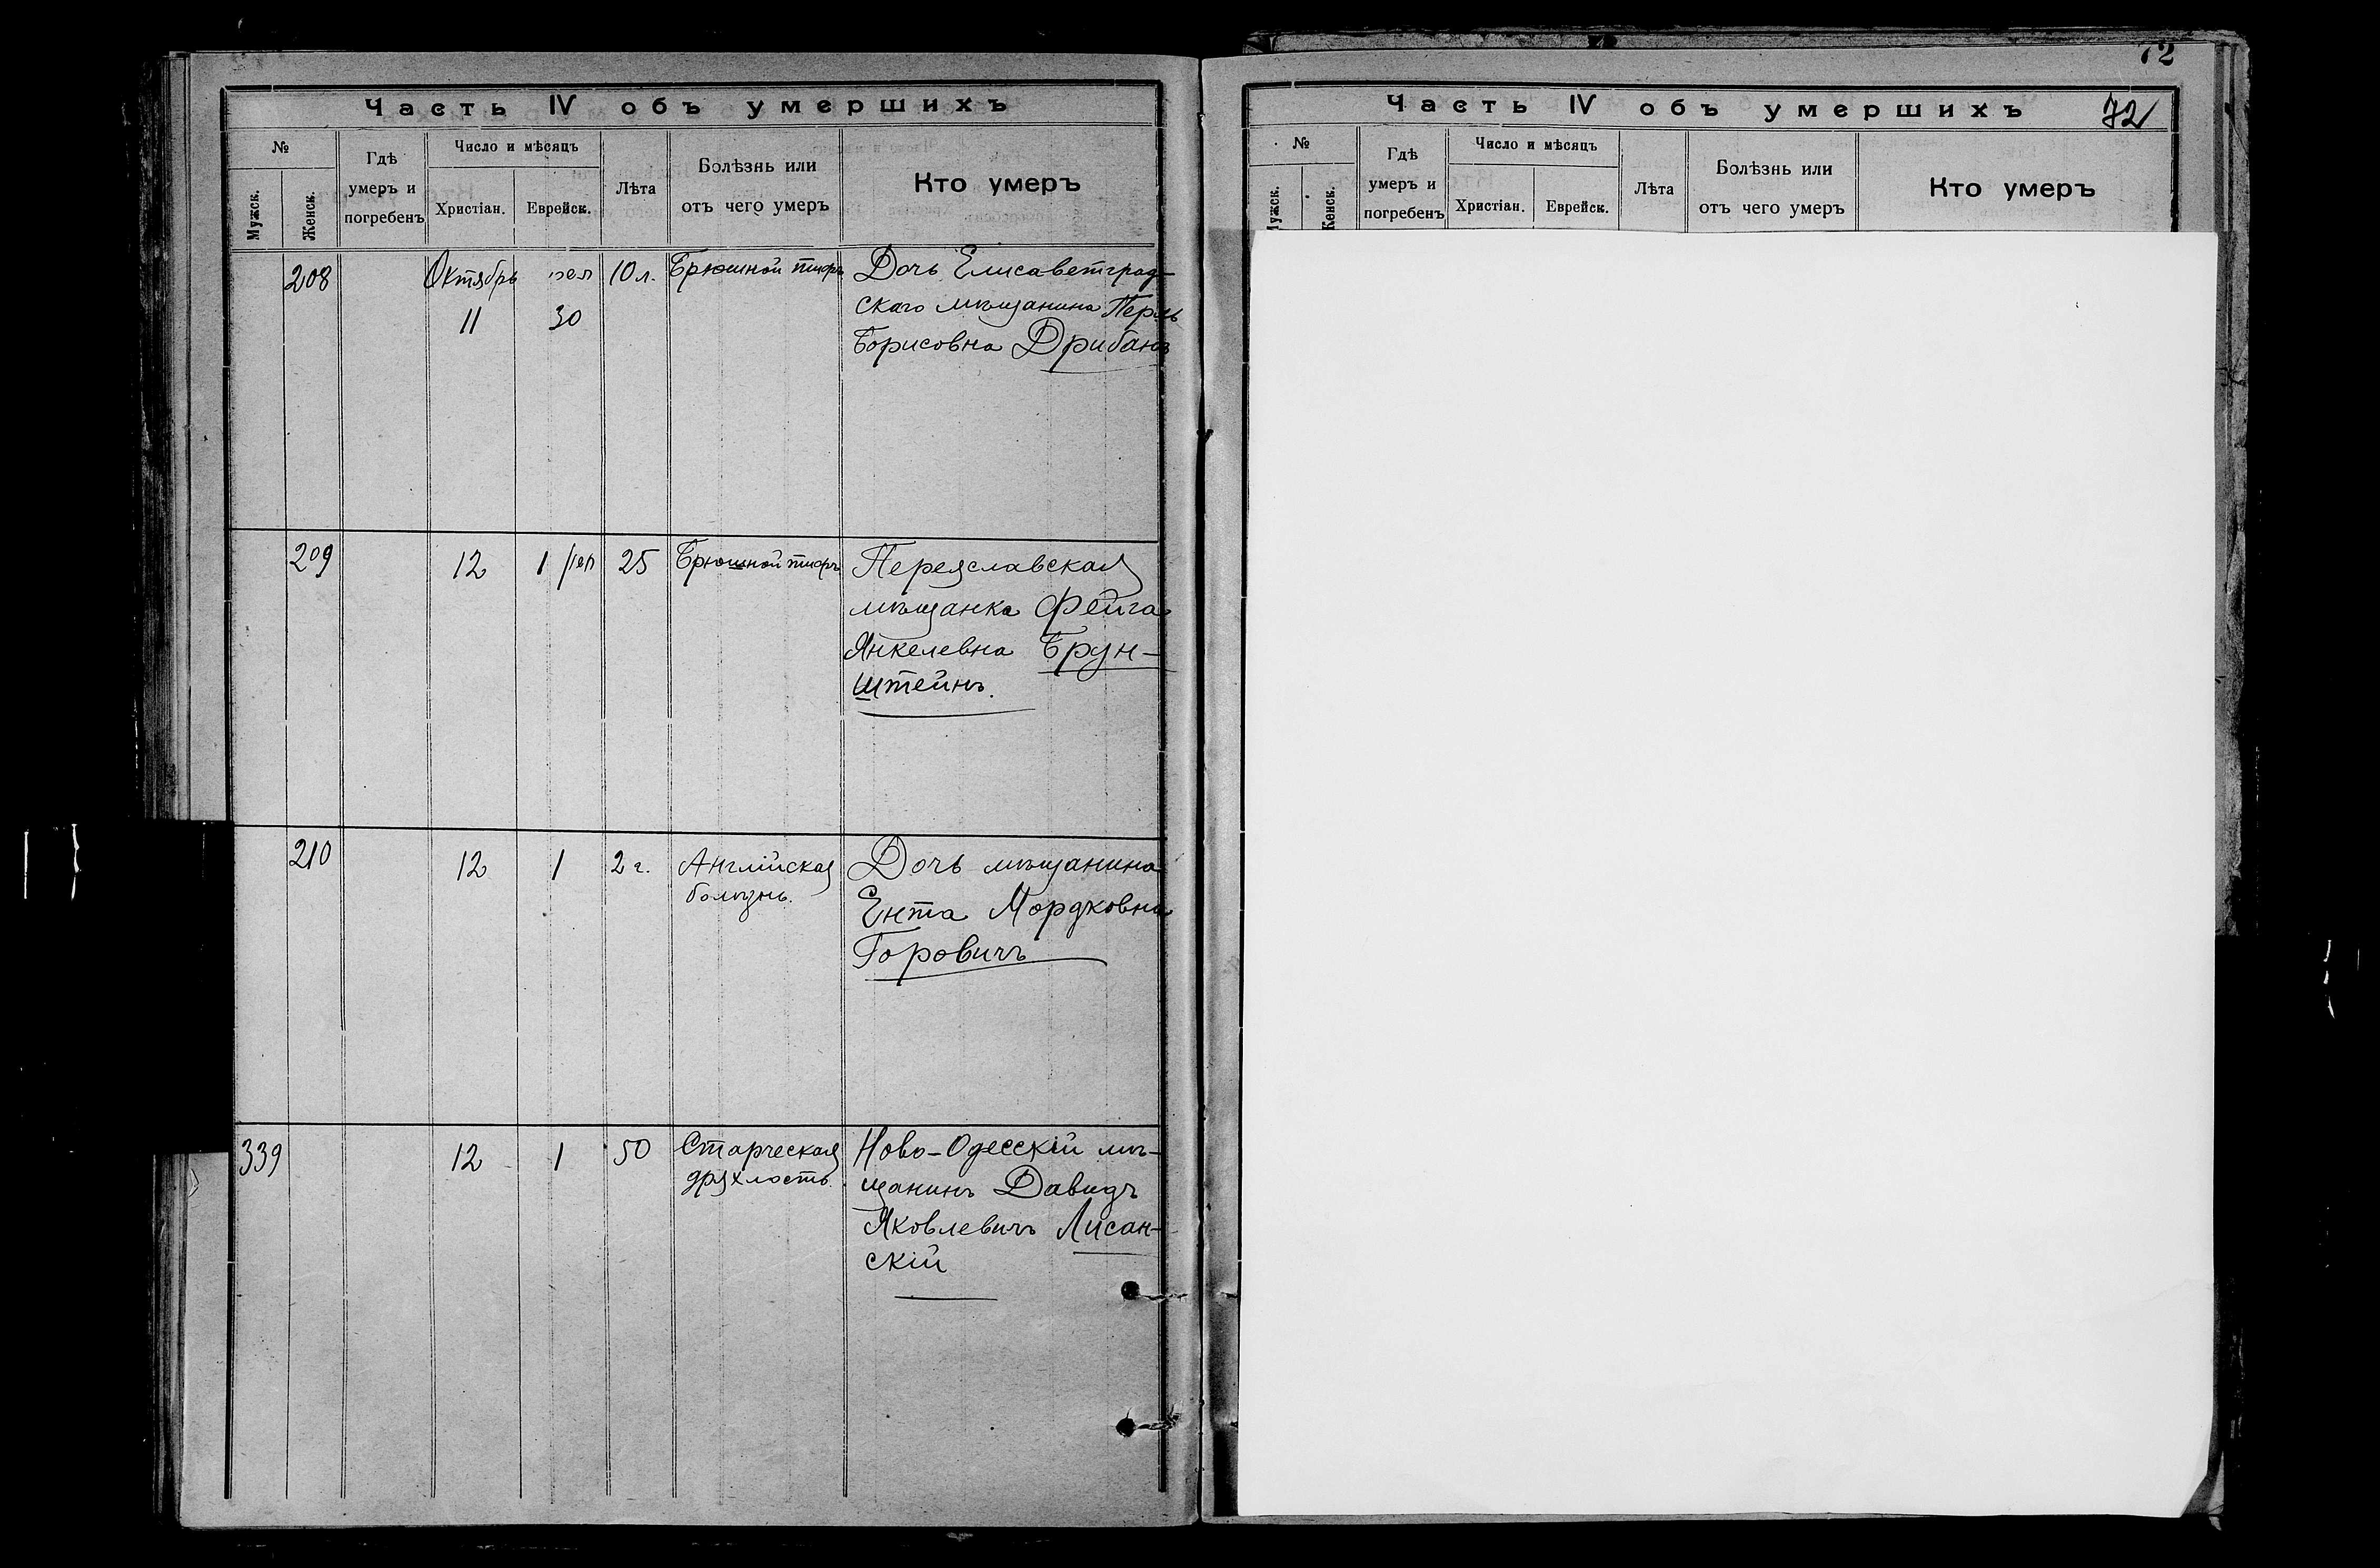 Часть IV объ умершихъ
№
Мужск.
Женск.
Гдѣ
умеръ и
погребенъ
Число и мѣсяцъ
Христіан.
Еврейск.
Лѣта
Болѣзнь или
отъ чего умеръ
Кто умеръ
208
Октябрь
11
30
10 л.
Брюшной тифъ
Дочь Елисаветград-
скаго мѣщанина Перль
Борисовна Дрибанъ
209
12
1
25
Брюшной тифъ
Переяславская
мѣщанка Фейга
Янкелевна Брун-
штейнъ.
210
12
1
2 г.
Англійская
болѣзнь.
Дочь мѣщанина
Ента Мордковна
Горовичъ
339
12
1
50
Старческая
дряхлость.
Ново-Одесскій мѣ-
щанинъ Давидъ
Яковлевичъ Лисан-
скій
72
Часть IV объ умершихъ
72
№
Мужск.
Женск.
Гдѣ
умеръ и
погребенъ
Число и мѣсяцъ
Христіан.
Еврейск.
Лѣта
Болѣзнь или
отъ чего умеръ
Кто умеръ